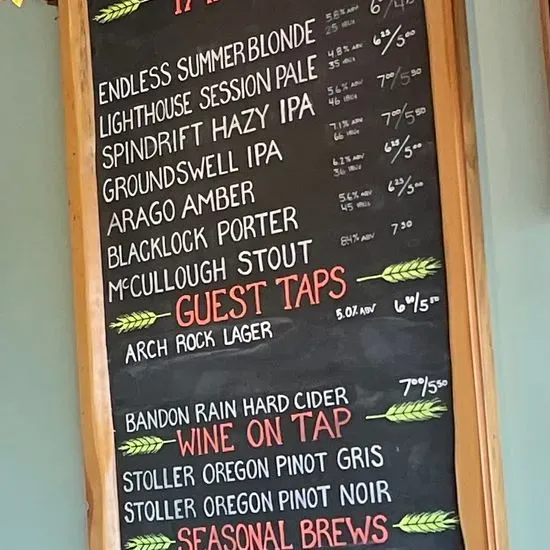 ENDLESS SUMMER BLONDE 5.8% ABV 25 IBUs
LIGHTHOUSE SESSION PALE 4.8% ABV 35 IBUs 6²⁵/5⁰⁰
SPINDRIFT HAZY IPA 5.6% ABV 46 IBUs 7⁰⁰/5⁵⁰
GROUNDSWELL IPA 7.1% ABV 66 IBUs 7⁰⁰/5⁵⁰
ARAGO AMBER 6.2% ABV 36 IBUs 6²⁵/5⁰⁰
BLACKLOCK PORTER 5.6% ABV 45 IBUs 6²⁵/5⁰⁰
McCULLOUGH STOUT 8.4% ABV 7.50
GUEST TAPS
ARCH ROCK LAGER 5.0% ABV 6⁵⁰/5⁰⁰
BANDON RAIN HARD CIDER 7⁰⁰/5⁵⁰
WINE ON TAP
STOLLER OREGON PINOT GRIS
STOLLER OREGON PINOT NOIR
SEASONAL BREWS